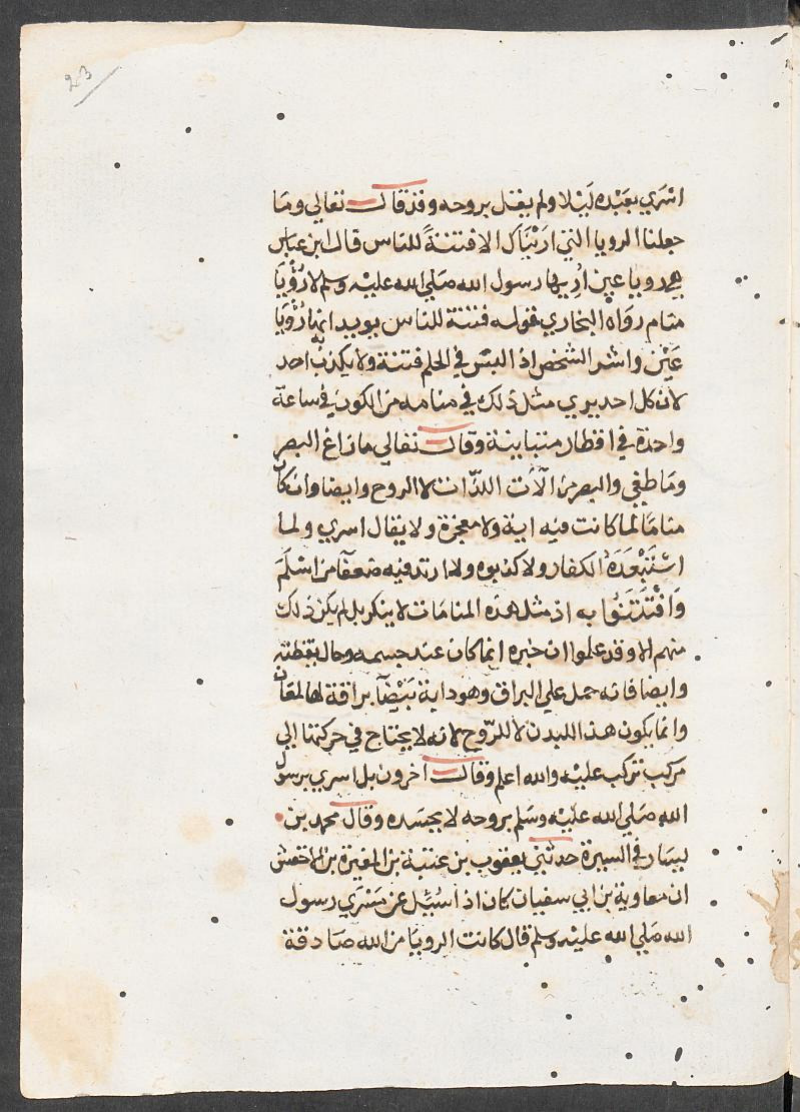 23
اسْرَي بعَبْده لَيْلا ولم يقل بروحه وقد قال تعالي ومَا
جعلنا الرويا التي ارَيْنَاك الا فتنةً للناس قال ابن عباس
هي رويا عين اُرِيها رسول الله صَلي الله عليْه وسلم لا رُؤْيَا
منام رَوَاه البخاري فقوله فتنة للناس يويد انها رُؤْيَا
عَيْن واسْر الشخص اذ ليسَ في الحلم فتنة ولا يكذب به احد
لان كل احد يري مثل ذلك في منامه من الكون في ساعة
واحدة في اقطار متباينة وقال تعالي ما زاغ البصر
ومَا طغي والبصر من آلات الذات لا الروح وايضا وان كان
منامًا لما كانت فيه اية ولا معجزة ولا يقال اسري ولما
اسْتَبْعَدَهُ الكفار ولا كذبوه ولا ارتد فيه ضعفا من اسْلَمَ
وَافْتَتَنُوا به اذ مثل هَذه المنامَات لا ينكر بل لم يكن ذلك
منهم الا وقد علموا ان خبره انما كان عند جسمه وحال يقظته
وايضا فانه حمل علي البراق وهو دابة بَيْضَآ براقة لها لمعان
وانما يكون هذا للبدن لا للرّوح لانه لا يحتاج في حركتها الي
مركب تركب عليْه والله اعلم وقال اخرون بل اسري برسول
الله صَلي الله عليْه وسَلم بروحه لا بجسَده وقال محمد بن
يسَار في السيرة حدثني يعقوب بن عتبة بن المغيرة بن الاخنس
ان معاوية بن ابي سفيان كان اذ اسُيِّل عن مَسْرَي رسول
الله صَلي الله عليْه وسلم قال كانت الرويَا من الله صَادقة